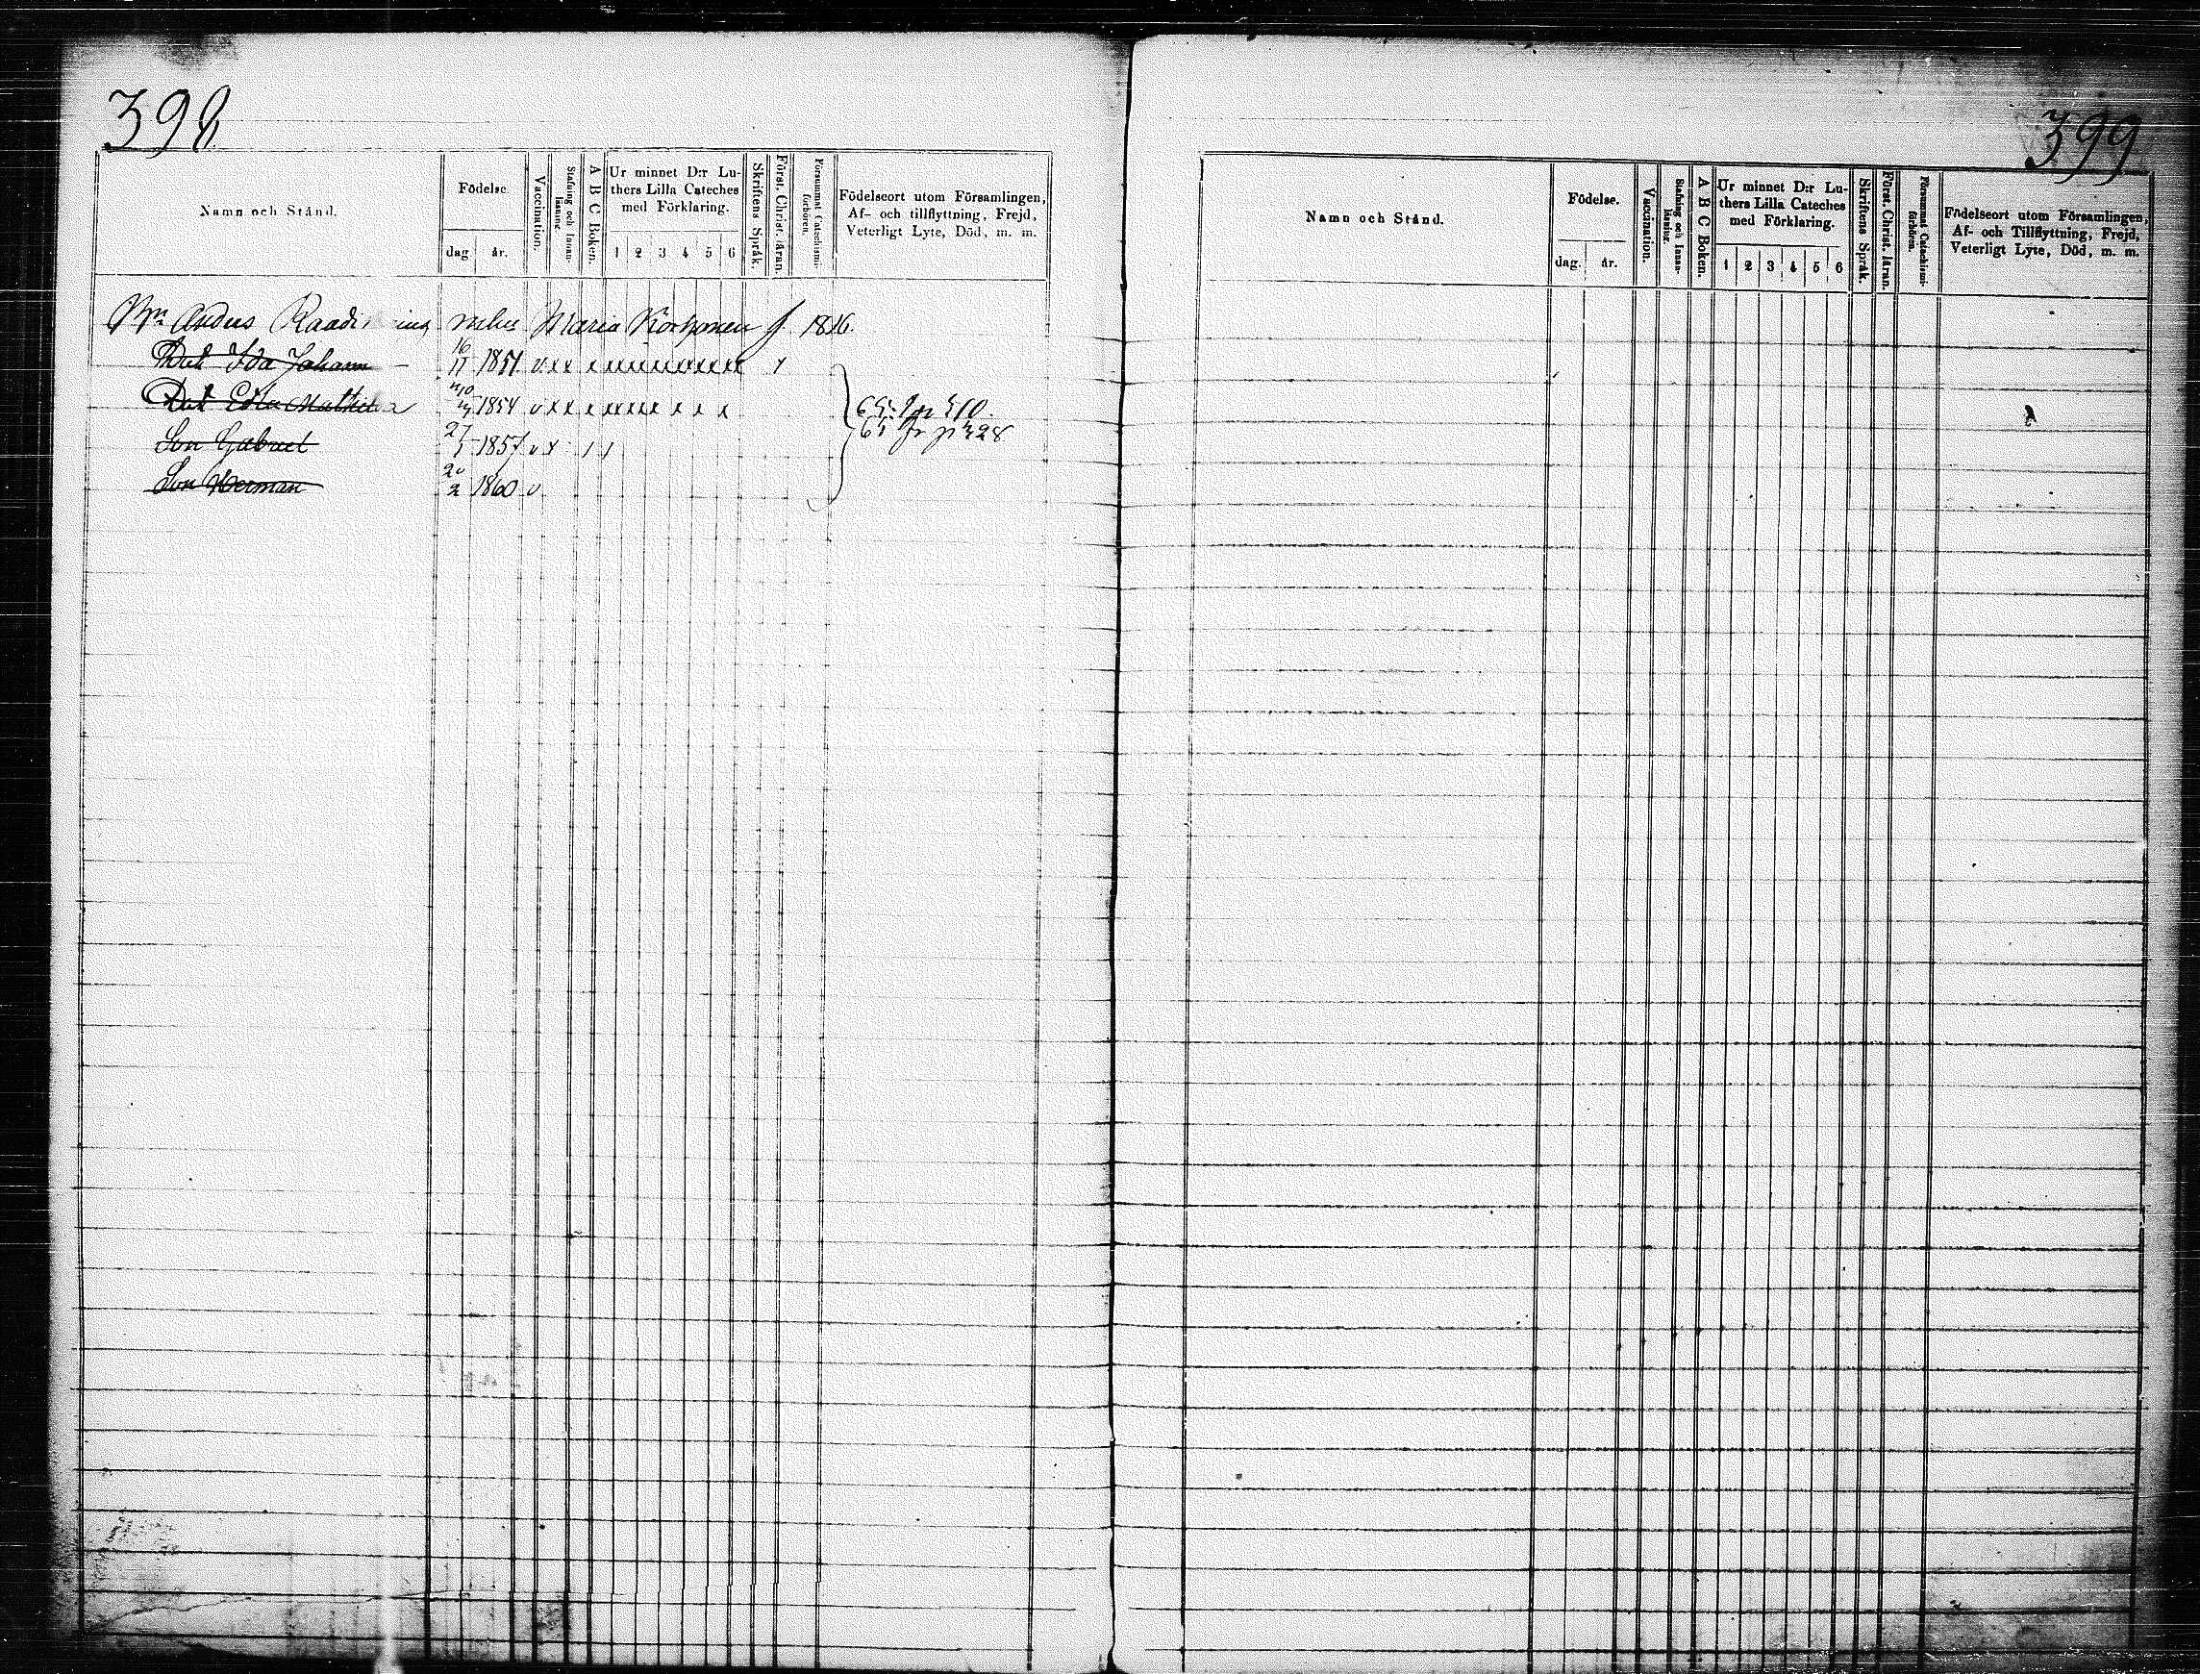 398
Namn och Stånd.
Födelse
dag
år.
Vaccination.
Stafning och Innanläsning.
A B C Boken.
Ur minnet D:r Luthers Lilla Cateches med Förklaring.
1 2 3 4 5 6
Skriftens Språk.
Först. Christ. läran.
Försummat Catechismiförhören.
Födelseort utom Församlingen,
Af- och tillflyttning, Frejd,
Veterligt Lyte, Död, m. m.
Anders Maria Korhonen f. 1816.
Dot Ida Johann 16/11 1851 v x x x x x x x x x x x x x
Dot Edla Mathilda 1854 v x x x x x x x x x x
Son Gabriel 27 1857 v x / /
Son Herman 20/2 1860 v
399
Namn och Stånd.
Födelse.
dag.
år.
Vaccination.
Stafning och Innanläsning.
A B C Boken.
Ur minnet D:r Luthers Lilla Cateches med Förklaring.
1 2 3 4 5 6
Skriftens Språk.
Först. Christ. läran.
Försummat Catechismiförhören.
Födelseort utom Församlingen,
Af- och Tillflyttning, Frejd,
Veterligt Lyte, Död, m. m.